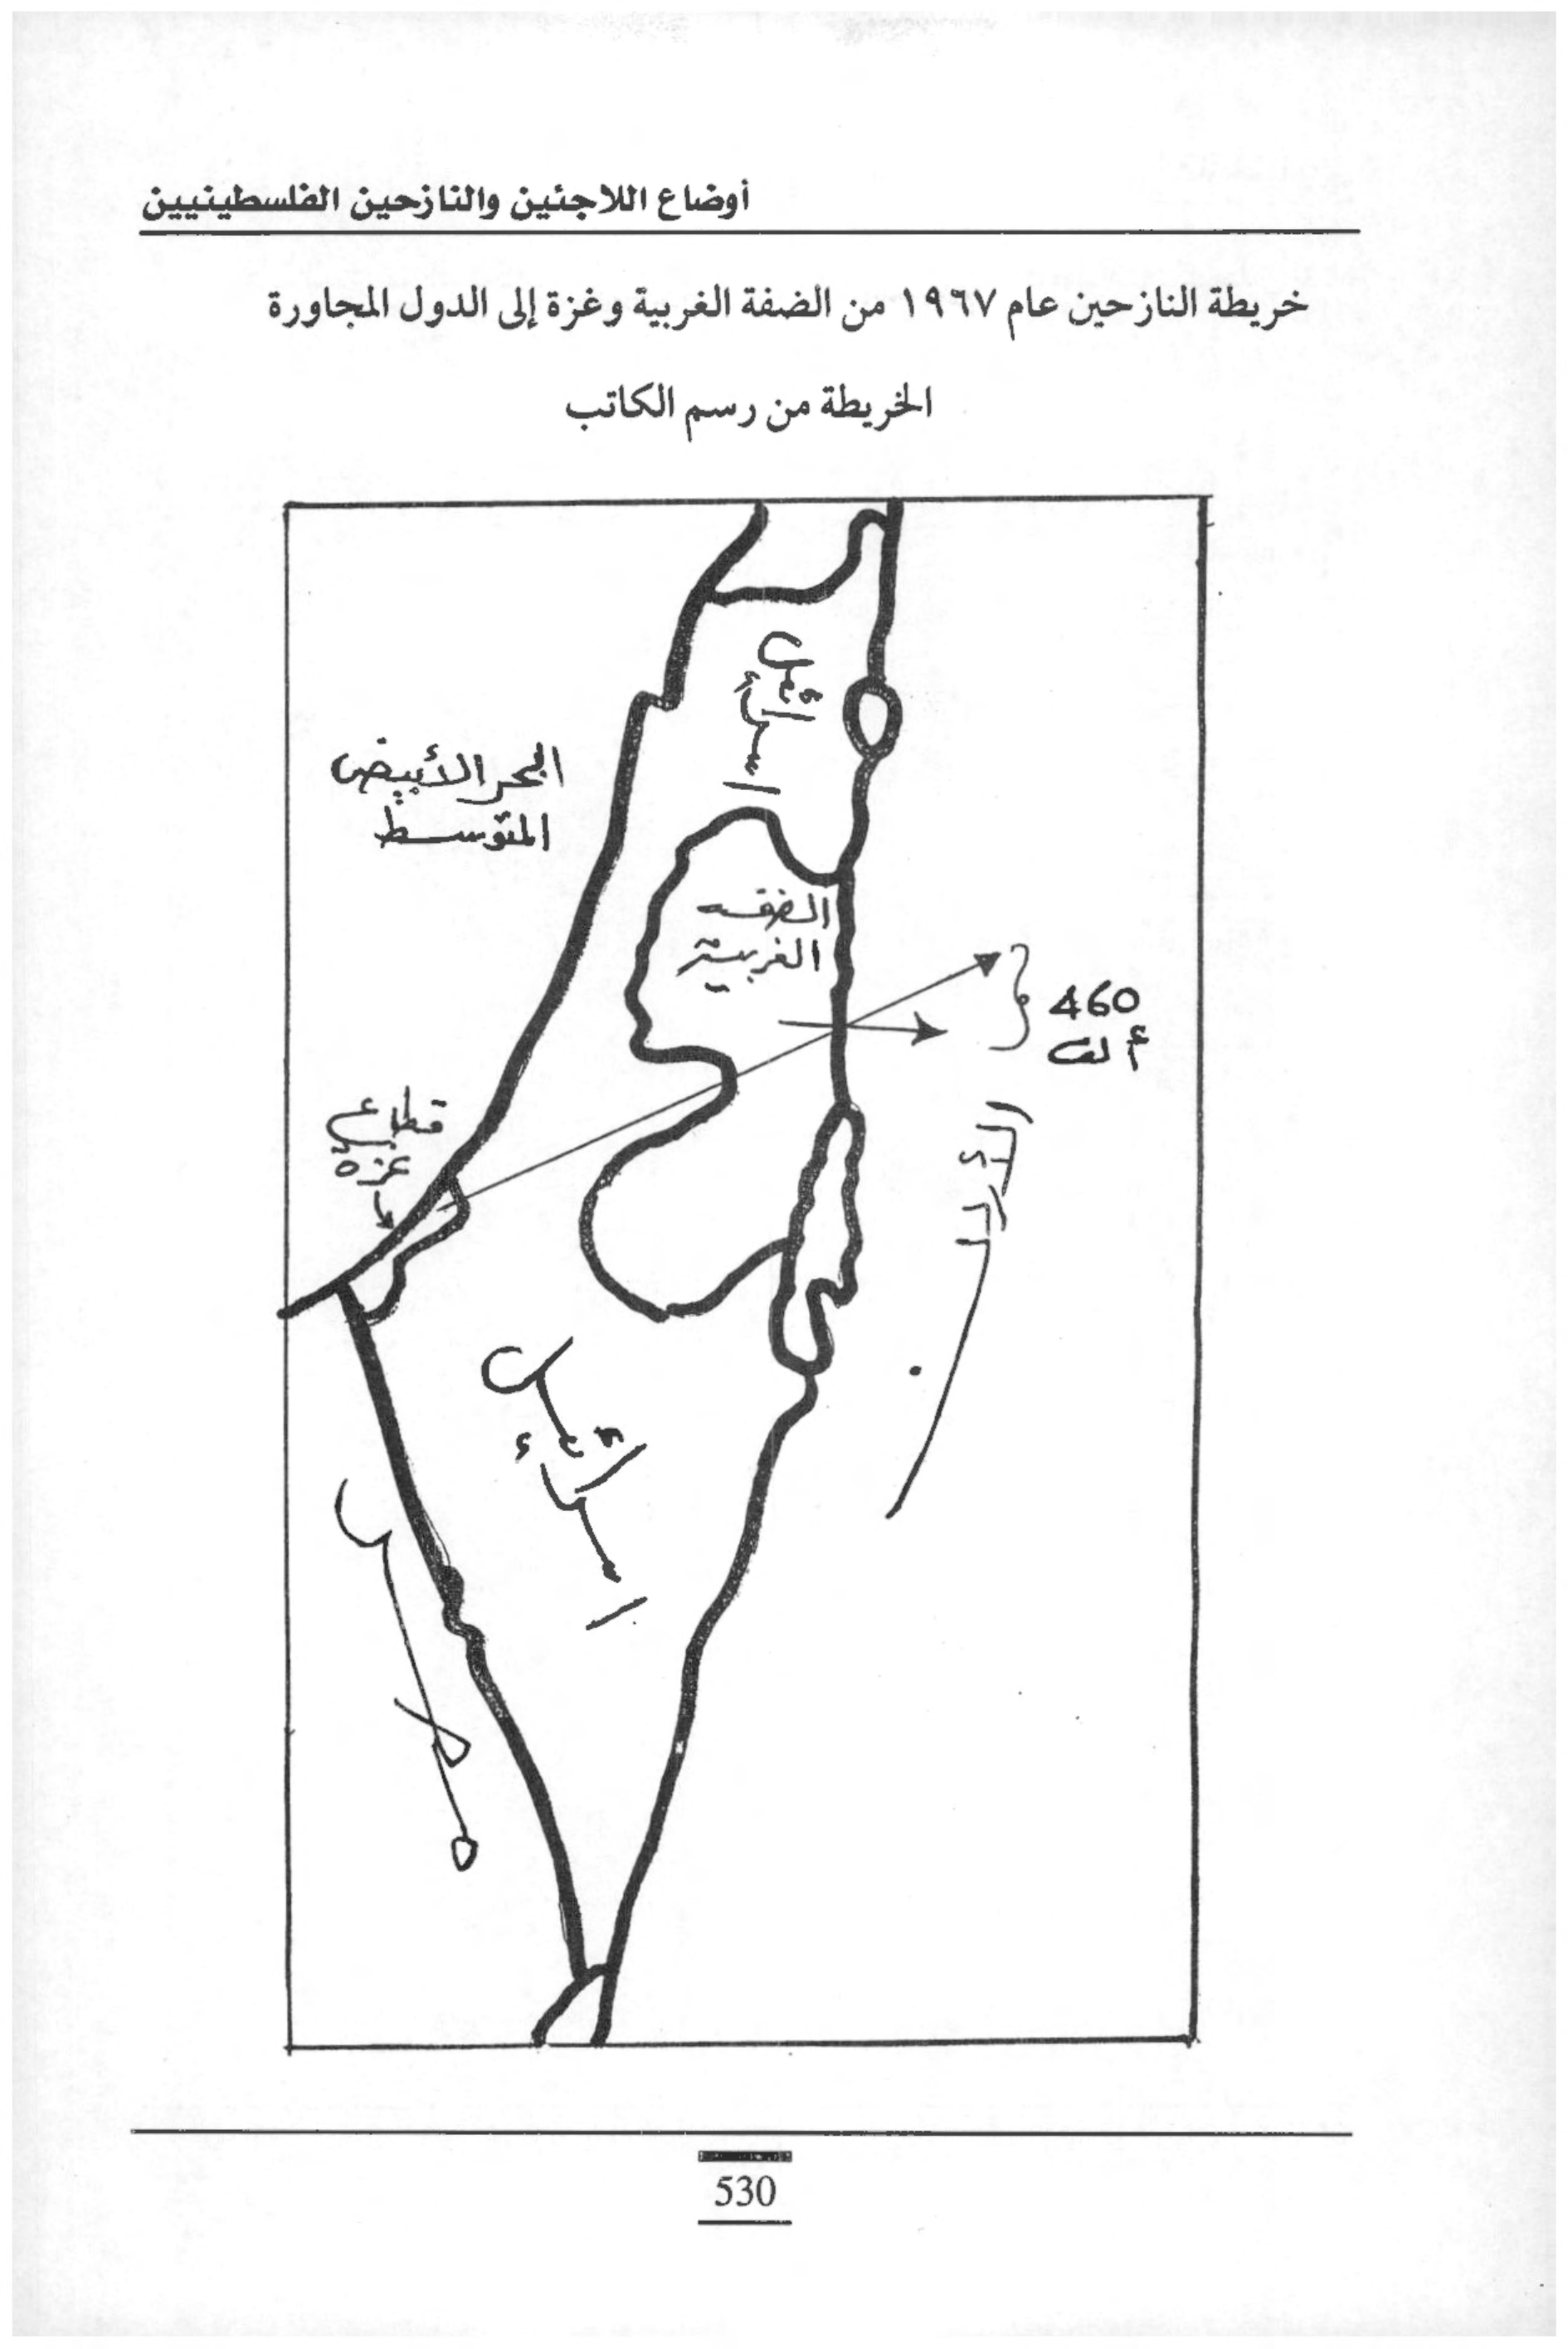 أوضاع اللاجئين والنازحين الفلسطينيين
خريطة النازحين عام ١٩٦٧ من الضفة الغربية وغزة إلى الدول المجاورة
الخريطة من رسم الكاتب
اسرائيل
البحر الأبيض
المتوسط
الضفه
الغربية
460
ألف
قطاع
غزة
الأردن
اسرائيل
مصر
530